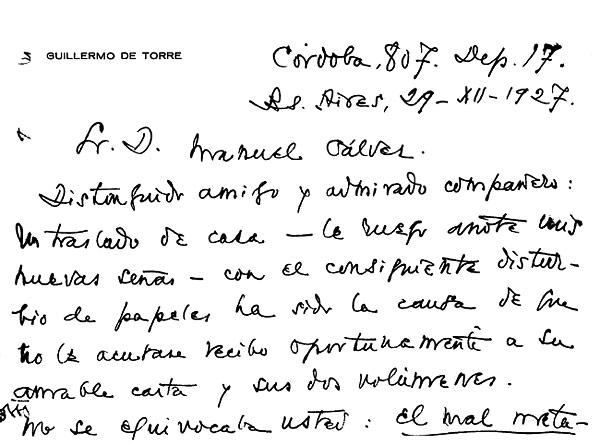 GUILLERMO DE TORRE
Córdoba, 807. Dep. 17.
Bs. Aires, 29-XII-1927.
Sr. D. Manuel Gálvez.
Distinguido amigo y admirado compañero:
Un traslado de casa — le ruego anote mis
nuevas señas — con el consiguiente distur-
bio de papeles ha sido la causa de que
no le acusase recibo oportunamente a su
amable carta y sus dos volúmenes.
No se equivocaba usted: el mal meta-